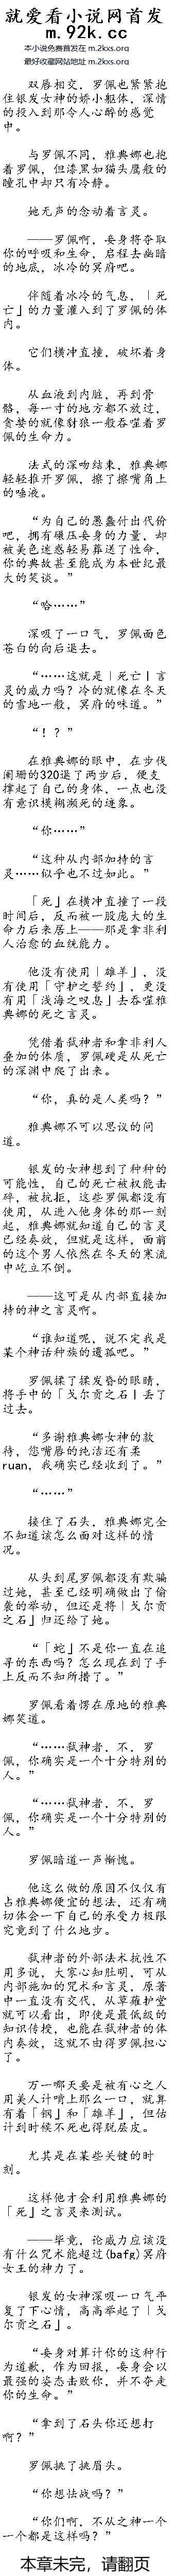 就爱看小说网首发
m.92k.cc
本小说免费首发在 m.2kxs.org
最好收藏网站地址 m.2kxs.org
双唇相交，罗佩也紧紧抱
住银发女神的娇小躯体，深情
的投入到那令人心醉的感觉
中。
与罗佩不同，雅典娜也抱
着罗佩，但漆黑如猫头鹰般的
瞳孔中却只有冷静。
她无声的念动着言灵。
——罗佩啊，妾身将夺取
你的呼吸和生命，启程去幽暗
的地底，冰冷的冥府吧。
伴随着冰冷的气息，「死
亡」的力量灌入到了罗佩的体
内。
它们横冲直撞，破坏着身
体。
从血液到内脏，再到骨
骼，每一寸的地方都不放过，
贪婪的就像豺狼一般吞噬着罗
佩的生命力。
法式的深吻结束，雅典娜
轻轻推开罗佩，擦了擦嘴角上
的唾液。
“为自己的愚蠢付出代价
吧，拥有碾压妾身的力量，却
被美色迷惑轻易葬送了性命，
你的典故甚至能成为本世纪最
大的笑谈。”
“哈……”
深吸了一口气，罗佩面色
苍白的向后退去。
“……这就是「死亡」言
灵的威力吗？冷的就像在冬天
的雪地一般，冥府的味道。”
“！？”
在雅典娜的眼中，在步伐
阑珊的320退了两步后，便支
撑起了自己的身体，一点也没
有意识模糊濒死的迹象。
“你……”
“这种从内部加持的言
灵……似乎也不过如此。”
「死」在横冲直撞了一段
时间后，反而被一股庞大的生
命力后来居上——那是拿非利
人治愈的血统能力。
他没有使用「雄羊」，没
有使用「守护之誓约」，更没
有用「浅海之叹息」去吞噬雅
典娜的死之言灵。
凭借着弑神者和拿非利人
叠加的体质，罗佩硬是从死亡
的深渊中爬了出来。
“你，真的是人类吗？”
雅典娜不可以思议的问
道。
银发的女神想到了种种的
可能性，自己的死亡被权能击
碎，被抗拒，这些罗佩都没有
使用，从进入他身体的那一刻
起，雅典娜就知道自己的言灵
已经奏效，但就是这样，面前
的这个男人依然在冬天的寒流
中屹立不倒。
——这可是从内部直接加
持的神之言灵啊。
“谁知道呢，说不定我是
某个神话种族的遗孤吧。”
罗佩揉了揉发昏的眼睛，
将手中的「戈尔贡之石」丢了
过去。
“多谢雅典娜女神的款
待，您嘴唇的纯洁还有柔
ruan，我确实已经收到了。”
“……”
接住了石头，雅典娜完全
不知道该怎么面对这样的情
况。
从头到尾罗佩都没有欺骗
过她，甚至已经明确做出了偷
袭的举动，但还是将「戈尔贡
之石」归还给了她。
“「蛇」不是你一直在追
寻的东西吗？怎么现在到了手
上反而不知所措了。”
罗佩看着愣在原地的雅典
娜笑道。
“……弑神者．不．罗
佩，你确实是一个十分特别的
人。”
“……弑神者．不．罗
佩，你确实是一个十分特别的
人。”
罗佩暗道一声惭愧。
他这么做的原因不仅仅有
占雅典娜便宜的想法，还有确
切体会一下自己的承受力极限
究竟到了什么地步。
弑神者的外部法术抗性不
用多说，大家心知肚明，可从
内部施加的咒术和言灵，原著
中一直没有交代，从草薙护堂
就可以看出，即使是最低级的
知识传授，也能在弑神者的体
内奏效，这就不由得罗佩担心
了。
万一哪天要是被有心之人
用美人计嘴上那么一口，就算
有着「钢」和「雄羊」，但估
计到时候不死也得脱层皮。
尤其是在某些关键的时
刻。
这样他才会利用雅典娜的
「死」之言灵来测试。
——毕竟，论威力应该没
有什么咒术能超过(bafg)冥府
女王的神力了。
银发的女神深吸一口气平
复了下心情，高高举起了「戈
尔贡之石」。
“妾身对算计你的这种行
为道歉，作为回报，妾身会以
最强的姿态击败你，并不夺走
你的生命。”
“拿到了石头你还想打
啊？”
罗佩挑了挑眉头。
“你想怯战吗？”
“你们啊，不从之神一个
一个都是这样吗？”
本章未完，请翻页